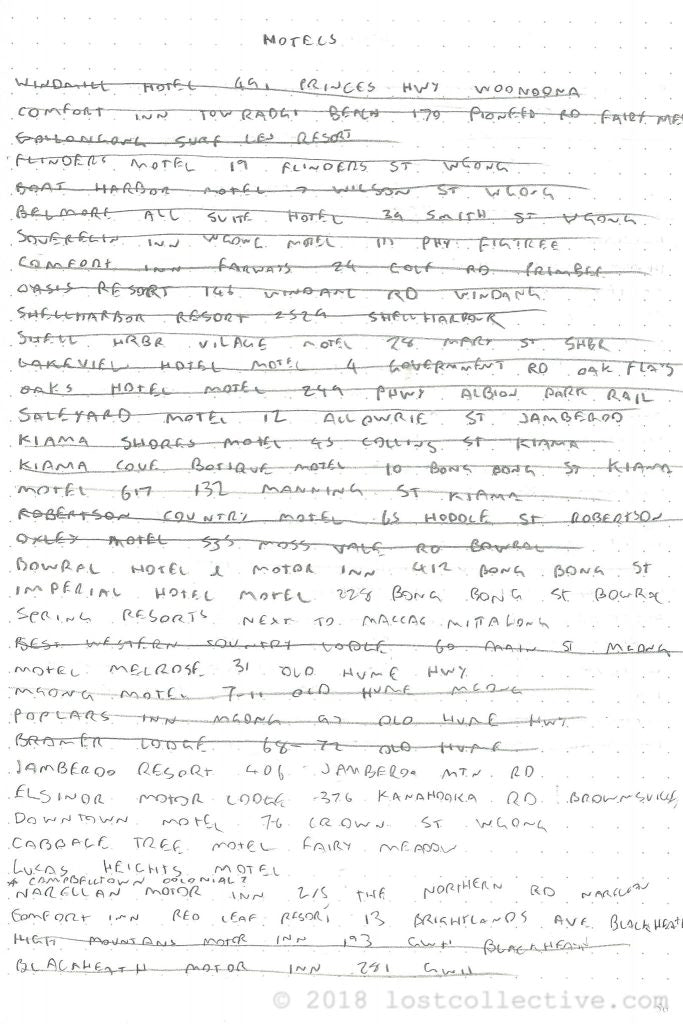 MOTELS
WINDMILL HOTEL 491 PRINCES HWY WOONOONA
COMFORT INN TOWRADGI BEACH 170 PIONEER RD FAIRY ME
GOLLONGONG SURF LES RESORT
FLINDERS MOTEL 19 FLINDERS ST WGONG
BOAT HARBOR MOTEL 7 WILSON ST WGONG
BELMORE ALL SUITE HOTEL 39 SMITH ST WGONG
SOVEREIGN INN WGONG MOTEL 111 PHY FIGTREE
COMFORT INN FAIRWAYS 24 GOLF RD PRIMBEE
OASIS RESORT 146 WINDANG RD WINDANG
SHELLHARBOR RESORT 2529 SHELLHARBOUR
SHELL HRBR VILAGE MOTEL 28 MARY ST SHBR
LAKEVIEW HOTEL MOTEL 4 GOVERNMENT RD OAK FLATS
OAKS HOTEL MOTEL 249 PHWY ALBION PARK RAIL
SALEYARD MOTEL 12 ALLOWRIE ST JAMBEROO
KIAMA SHORES MOTEL 45 COLLINS ST KIAMA
KIAMA COVE BOTIQUE MOTEL 10 BONG BONG ST KIAMA
MOTEL 617 132 MANNING ST KIAMA
ROBERTSON COUNTRY MOTEL 65 HODDLE ST ROBERTSON
OXLEY MOTEL 535 MOSS VALE RD BOWRAL
BOWRAL HOTEL & MOTOR INN 412 BONG BONG ST
IMPERIAL HOTEL MOTEL 228 BONG BONG ST BOWRAL
SPRING RESORTS NEXT TO MACCAS MITTALONG
BEST WESTERN COUNTRY LODGE 60 MAIN ST MGONG
MOTEL MELROSE 31 OLD HUME HWY
MGONG MOTEL 7-11 OLD HUME MGONG
POPLARS INN MGONG 97 OLD HUME HWY
BRAMER LODGE 68-72 OLD HUME
JAMBEROO RESORT 406 JAMBEROO MTN RD
ELSINOR MOTOR LODGE 376 KANAHOOKA RD BROWNSVILLE
DOWNTOWN MOTEL 76 CROWN ST WGONG
CABBAGE TREE MOTEL FAIRY MEADOW
LUCAS HEIGHTS MOTEL
* CAMPBELLTOWN COLONIAL?
NARELLAN MOTOR INN 215 THE NORTHERN RD NARELLAN
COMFORT INN RED LEAF RESORT 13 BRIGHTLANDS AVE BLACKHEATH
HIGH MOUNTAINS MOTOR INN 193 GWH BLACKHEATH
BLACKHEATH MOTOR INN 281 GWH
© 2018 lostcollective.com